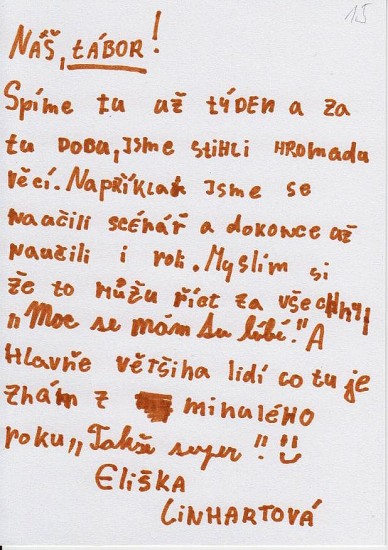 15
NÁŠ, tÁBOR!
Spíme tu už týDEN a za
tu DOBU, Jsme stihli HROMADU
věcí. Například Jsme se
naučili scénář a dokonce už
naučili i roli. Myslím si
že to můžu říct za všechny,
„Moc se mám tu líbí." A
Hlavňe většina lidí co tu je
znám z minulého
roku „Takže super"!
Eliška
LINHARTOVÁ